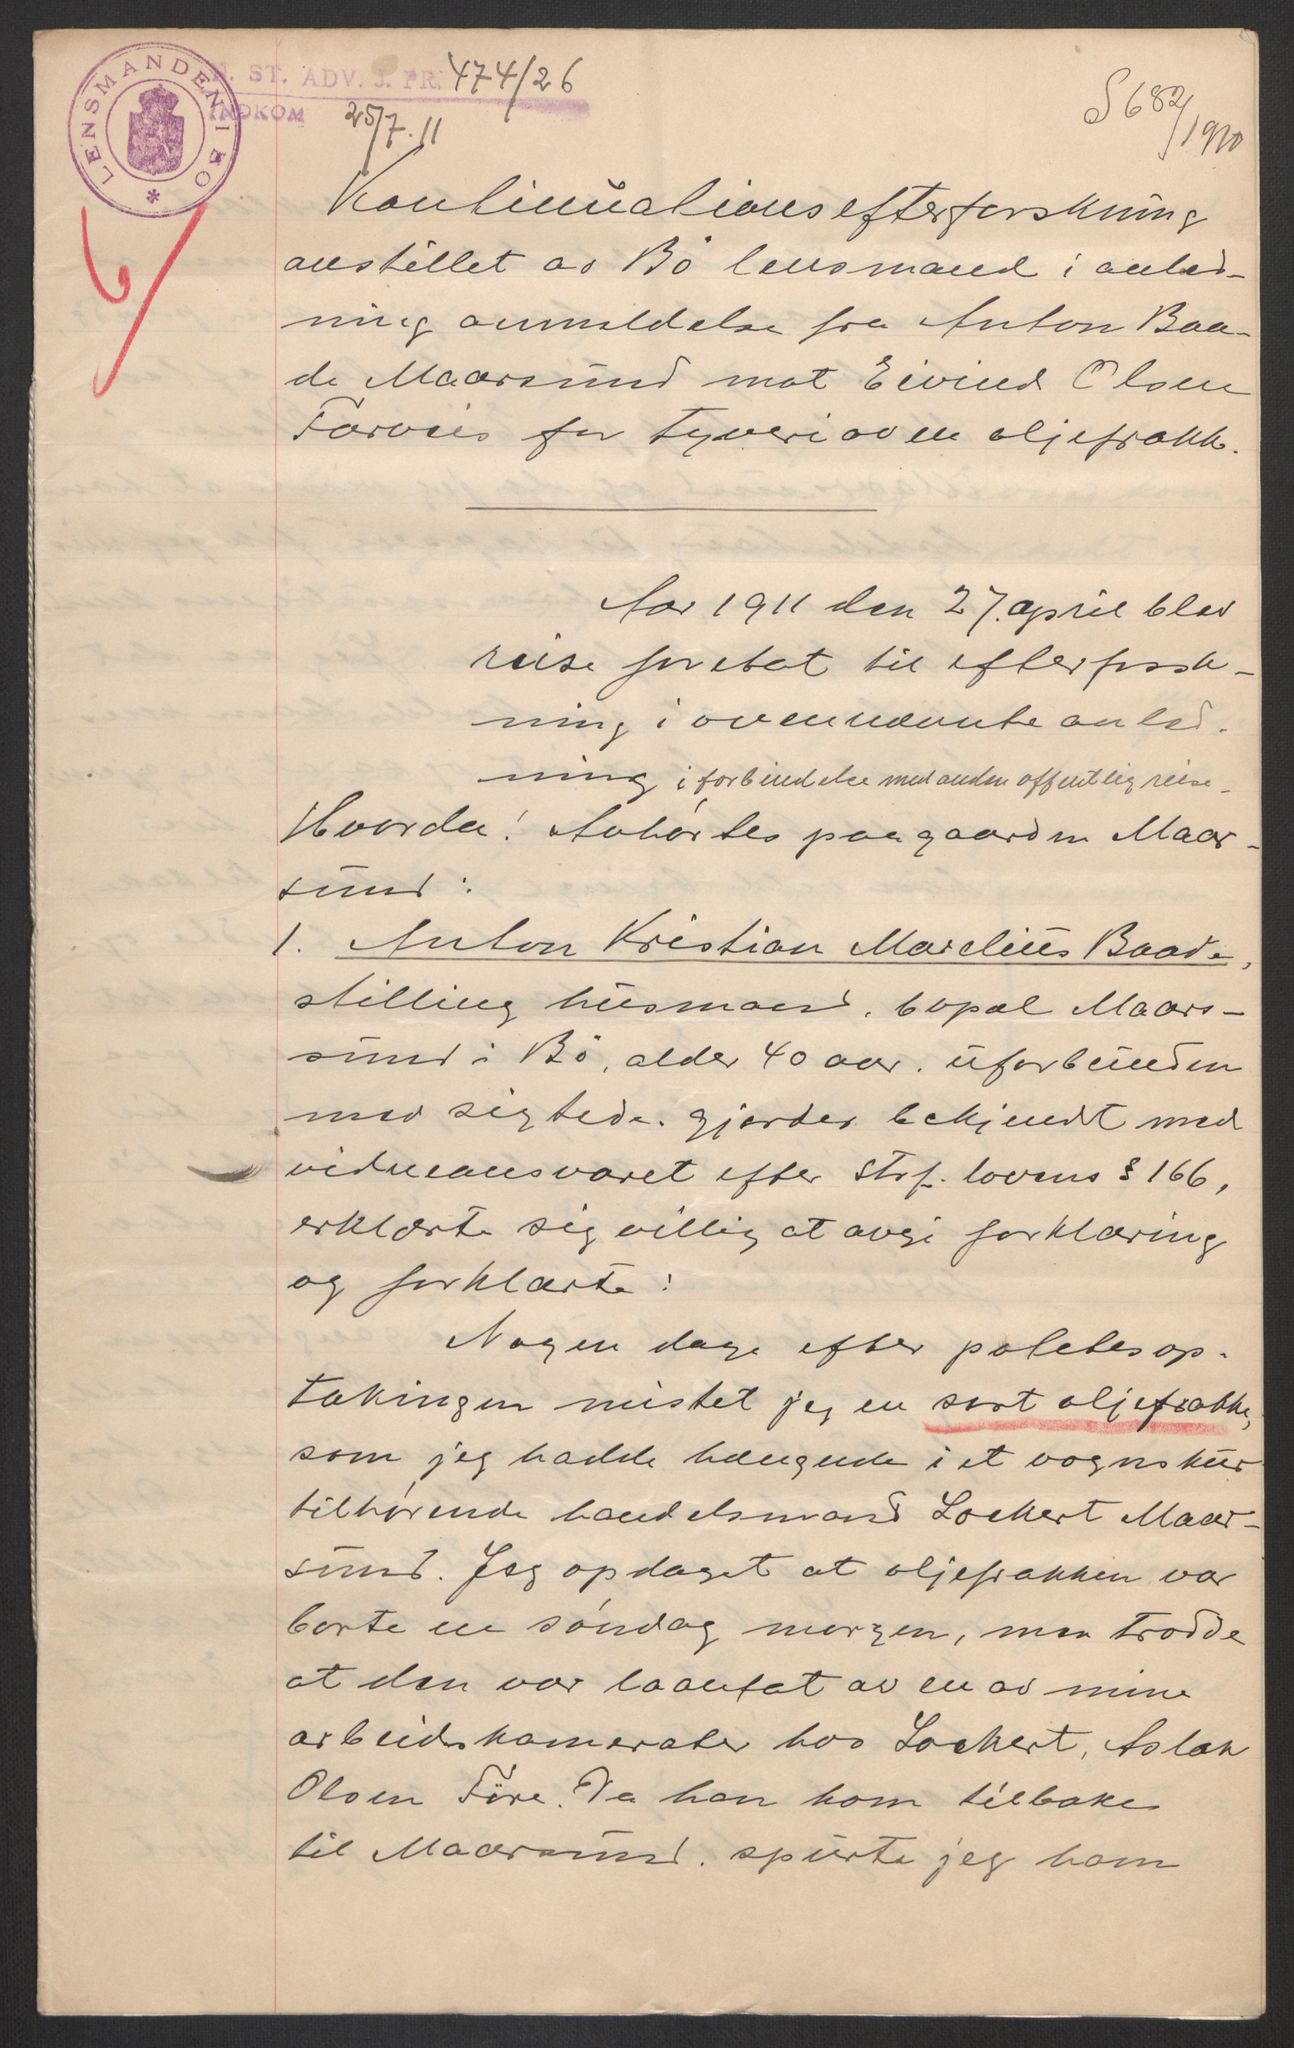 LENSMANDEN I BØ
ST. ADV. J. FR. 474/26
INDKOM 25/7.11
S 682/1910
6/
Kontinuationsefterforskning
anstillet av Bö lensmand i anled-
ning anmeldelse fra Anton Baa-
de Maarsund mot Eivind Olsen
for tyveri av en oljefrakk.
Aar 1911 den 27. april blev
reise foretat til efterforsk-
ning i ovennævnte anled-
ning i forbindelse med anden offentlig reise.
Hvorda! Avhørtes paa gaarden Maar-
sund:
1. Anton Kristian Marelius Baade,
stilling husmand, bopæl Maar-
sund i Bö, alder 40 aar. uforbunden
med sigtede. gjordes bekjendt med
vidneansvaret efter strf. lovens § 166,
erklærte sig villig at avgi forklaring
og forklarte:
Nogen dage efter potetesop-
takingen mistet jeg en sort oljefrakke,
som jeg hadde hængende i et vognskur
tilhørende handelsmand Lockert Maar-
sund. Jeg opdaget at oljefrakken var
borte en søndag morgen, men trodde
at den var laantat av en av mine
arbeidskamerater hos Lockert, Aslak
Olsen Føre. Da han kom tilbake
til Maarsund. spurte jeg ham